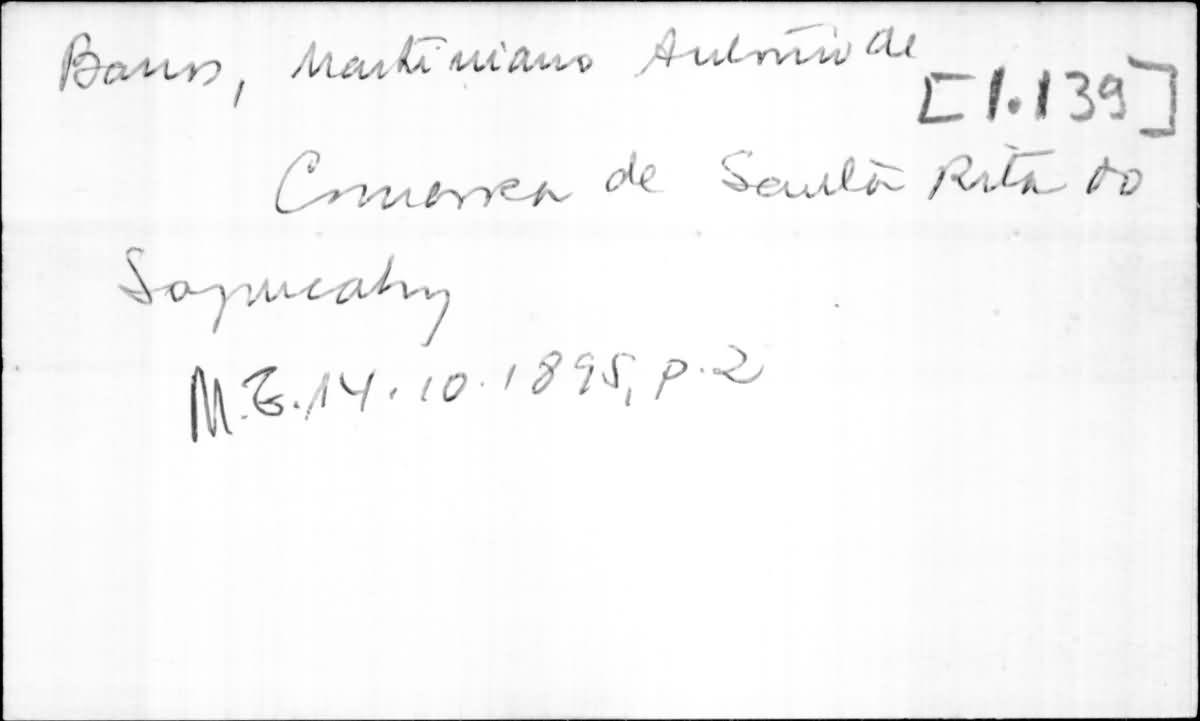 Barros, Martiniano Antônio de
[1.139]
Comarca de Santa Rita do
Sapucahy
M.G. 14.10.1895, p.2